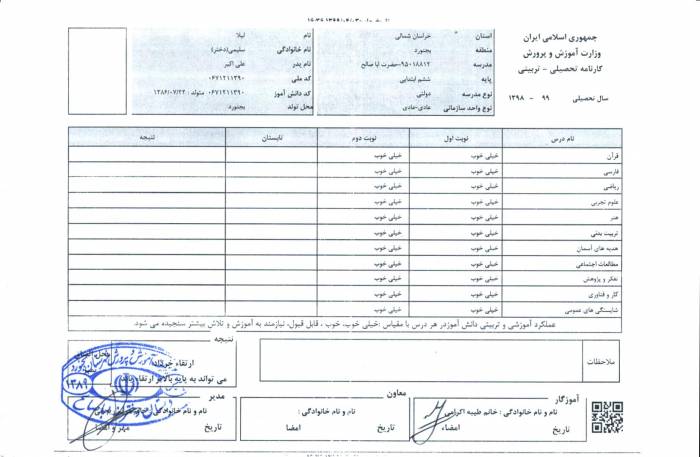 جمهوری اسلامی ایران
وزارت آموزش و پرورش
کارنامه تحصیلی - تربیتی
سال تحصیلی ۹۹ - ۱۳۹۸
استان خراسان شمالی
منطقه بجنورد
مدرسه ۹۵۰۱۸۸۱۲-حضرت ابا صالح
پایه ششم ابتدایی
نوع مدرسه دولتی
نوع واحد سازمانی عادی-عادی
نام لیلا
نام خانوادگی سلیمی(دختر)
نام پدر علی اکبر
کد ملی ۰۶۷۱۲۱۱۳۹۰
کد دانش آموز ۰۶۷۱۲۱۱۳۹۰ متولد: ۱۳۸۶/۰۷/۲۲
محل تولد بجنورد
نام درس نوبت اول نوبت دوم تابستان نتیجه
قرآن خیلی خوب خیلی خوب
فارسی خیلی خوب خیلی خوب
ریاضی خیلی خوب خیلی خوب
علوم تجربی خیلی خوب خیلی خوب
هنر خیلی خوب خیلی خوب
تربیت بدنی خیلی خوب خیلی خوب
هدیه های آسمان خیلی خوب خیلی خوب
مطالعات اجتماعی خیلی خوب خیلی خوب
تفکر و پژوهش خیلی خوب خیلی خوب
کار و فناوری خیلی خوب خیلی خوب
شایستگی های عمومی خیلی خوب خیلی خوب
عملکرد آموزشی و تربیتی دانش آموزدر هر درس با مقیاس :خیلی خوب، خوب ، قابل قبول، نیازمند به آموزش و تلاش بیشتر سنجیده می شود.
ملاحظات
نتیجه
ارتقاء خرداد
می تواند به پایه بالاتر ارتقاء یابد
آموزگار
نام و نام خانوادگی : خانم طیبه اکرامی
امضاء تاریخ
معاون
نام و نام خانوادگی :
امضا تاریخ
مدیر
نام و نام خانوادگی :
مهر و امضا تاریخ
۱۳۸۹